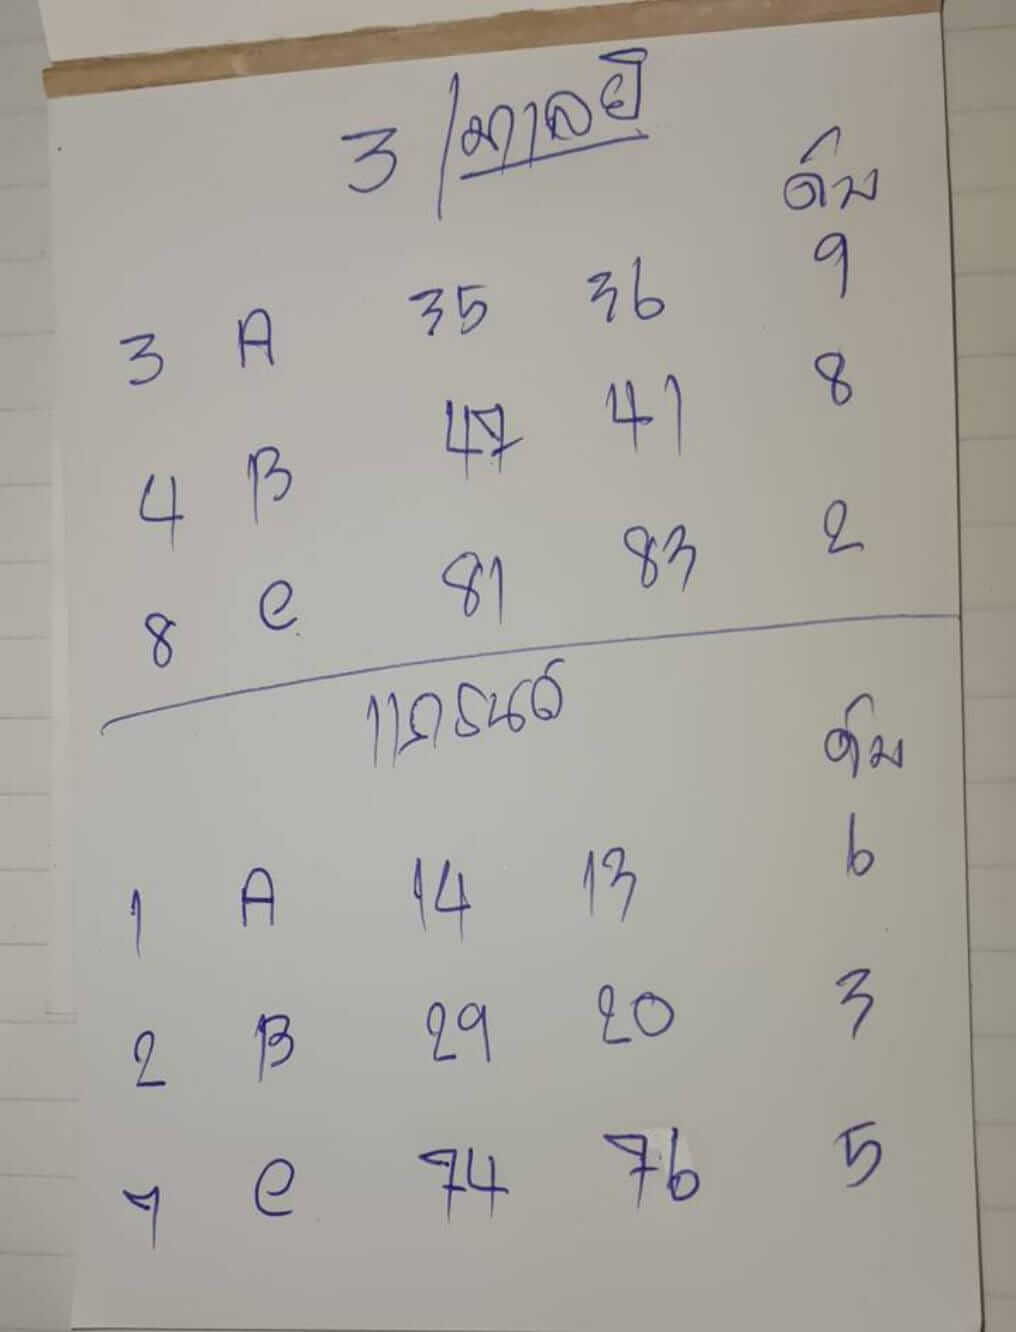 3 / มาเลย์
ดับ
3 A 35 36 9
4 B 47 41 8
8 C 81 83 2
ดับ
1 A 14 13 6
2 B 29 20 3
7 C 74 76 5